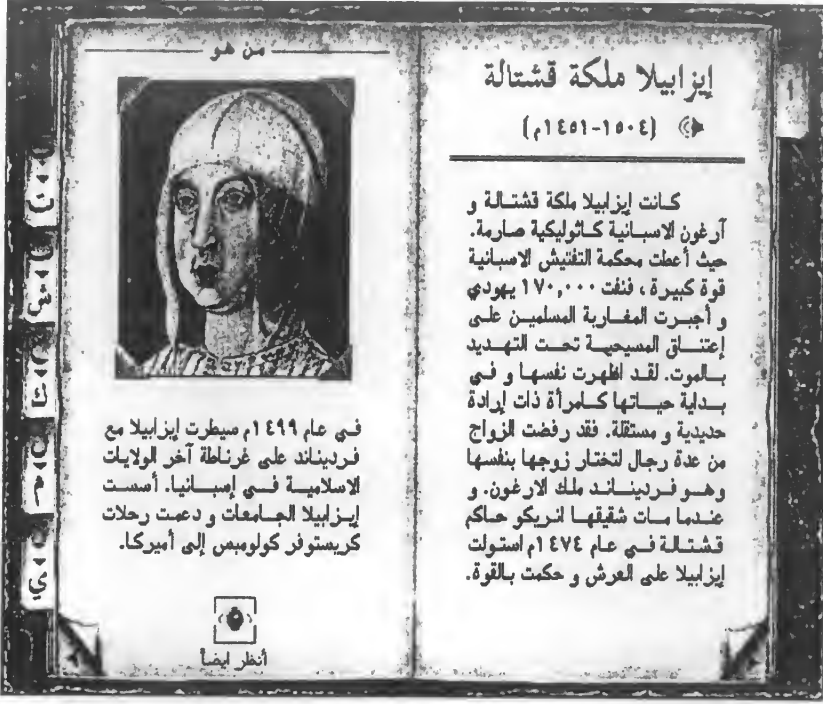 إيزابيلا ملكة قشتالة
(١٤٥١-١٥٠٤م)
كانت إيزابيلا ملكة قشتالة و
آرغون الاسبانية كاثوليكية صارمة.
حيث أعطت محكمة التفتيش الاسبانية
قوة كبيرة ، فنفت ١٧٠,٠٠٠ يهودي
و أجبرت المغاربة المسلمين على
إعتناق المسيحية تحت التهديد
بالموت. لقد اظهرت نفسها و في
بداية حياتها كامرأة ذات إرادة
حديدية و مستقلة. فقد رفضت الزواج
من عدة رجال لتختار زوجها بنفسها
وهو فرديناند ملك الارغون. و
عندما مات شقيقها انريكو حاكم
قشتالة في عام ١٤٧٤م استولت
إيزابيلا على العرش و حكمت بالقوة.
من هو
في عام ١٤٩٩م سيطرت إيزابيلا مع
فرديناند على غرناطة آخر الولايات
الاسلامية في إسبانيا. أسست
إيزابيلا الجامعات و دعمت رحلات
كريستوفر كولومبس إلى أميركا.
أنظر ايضاً